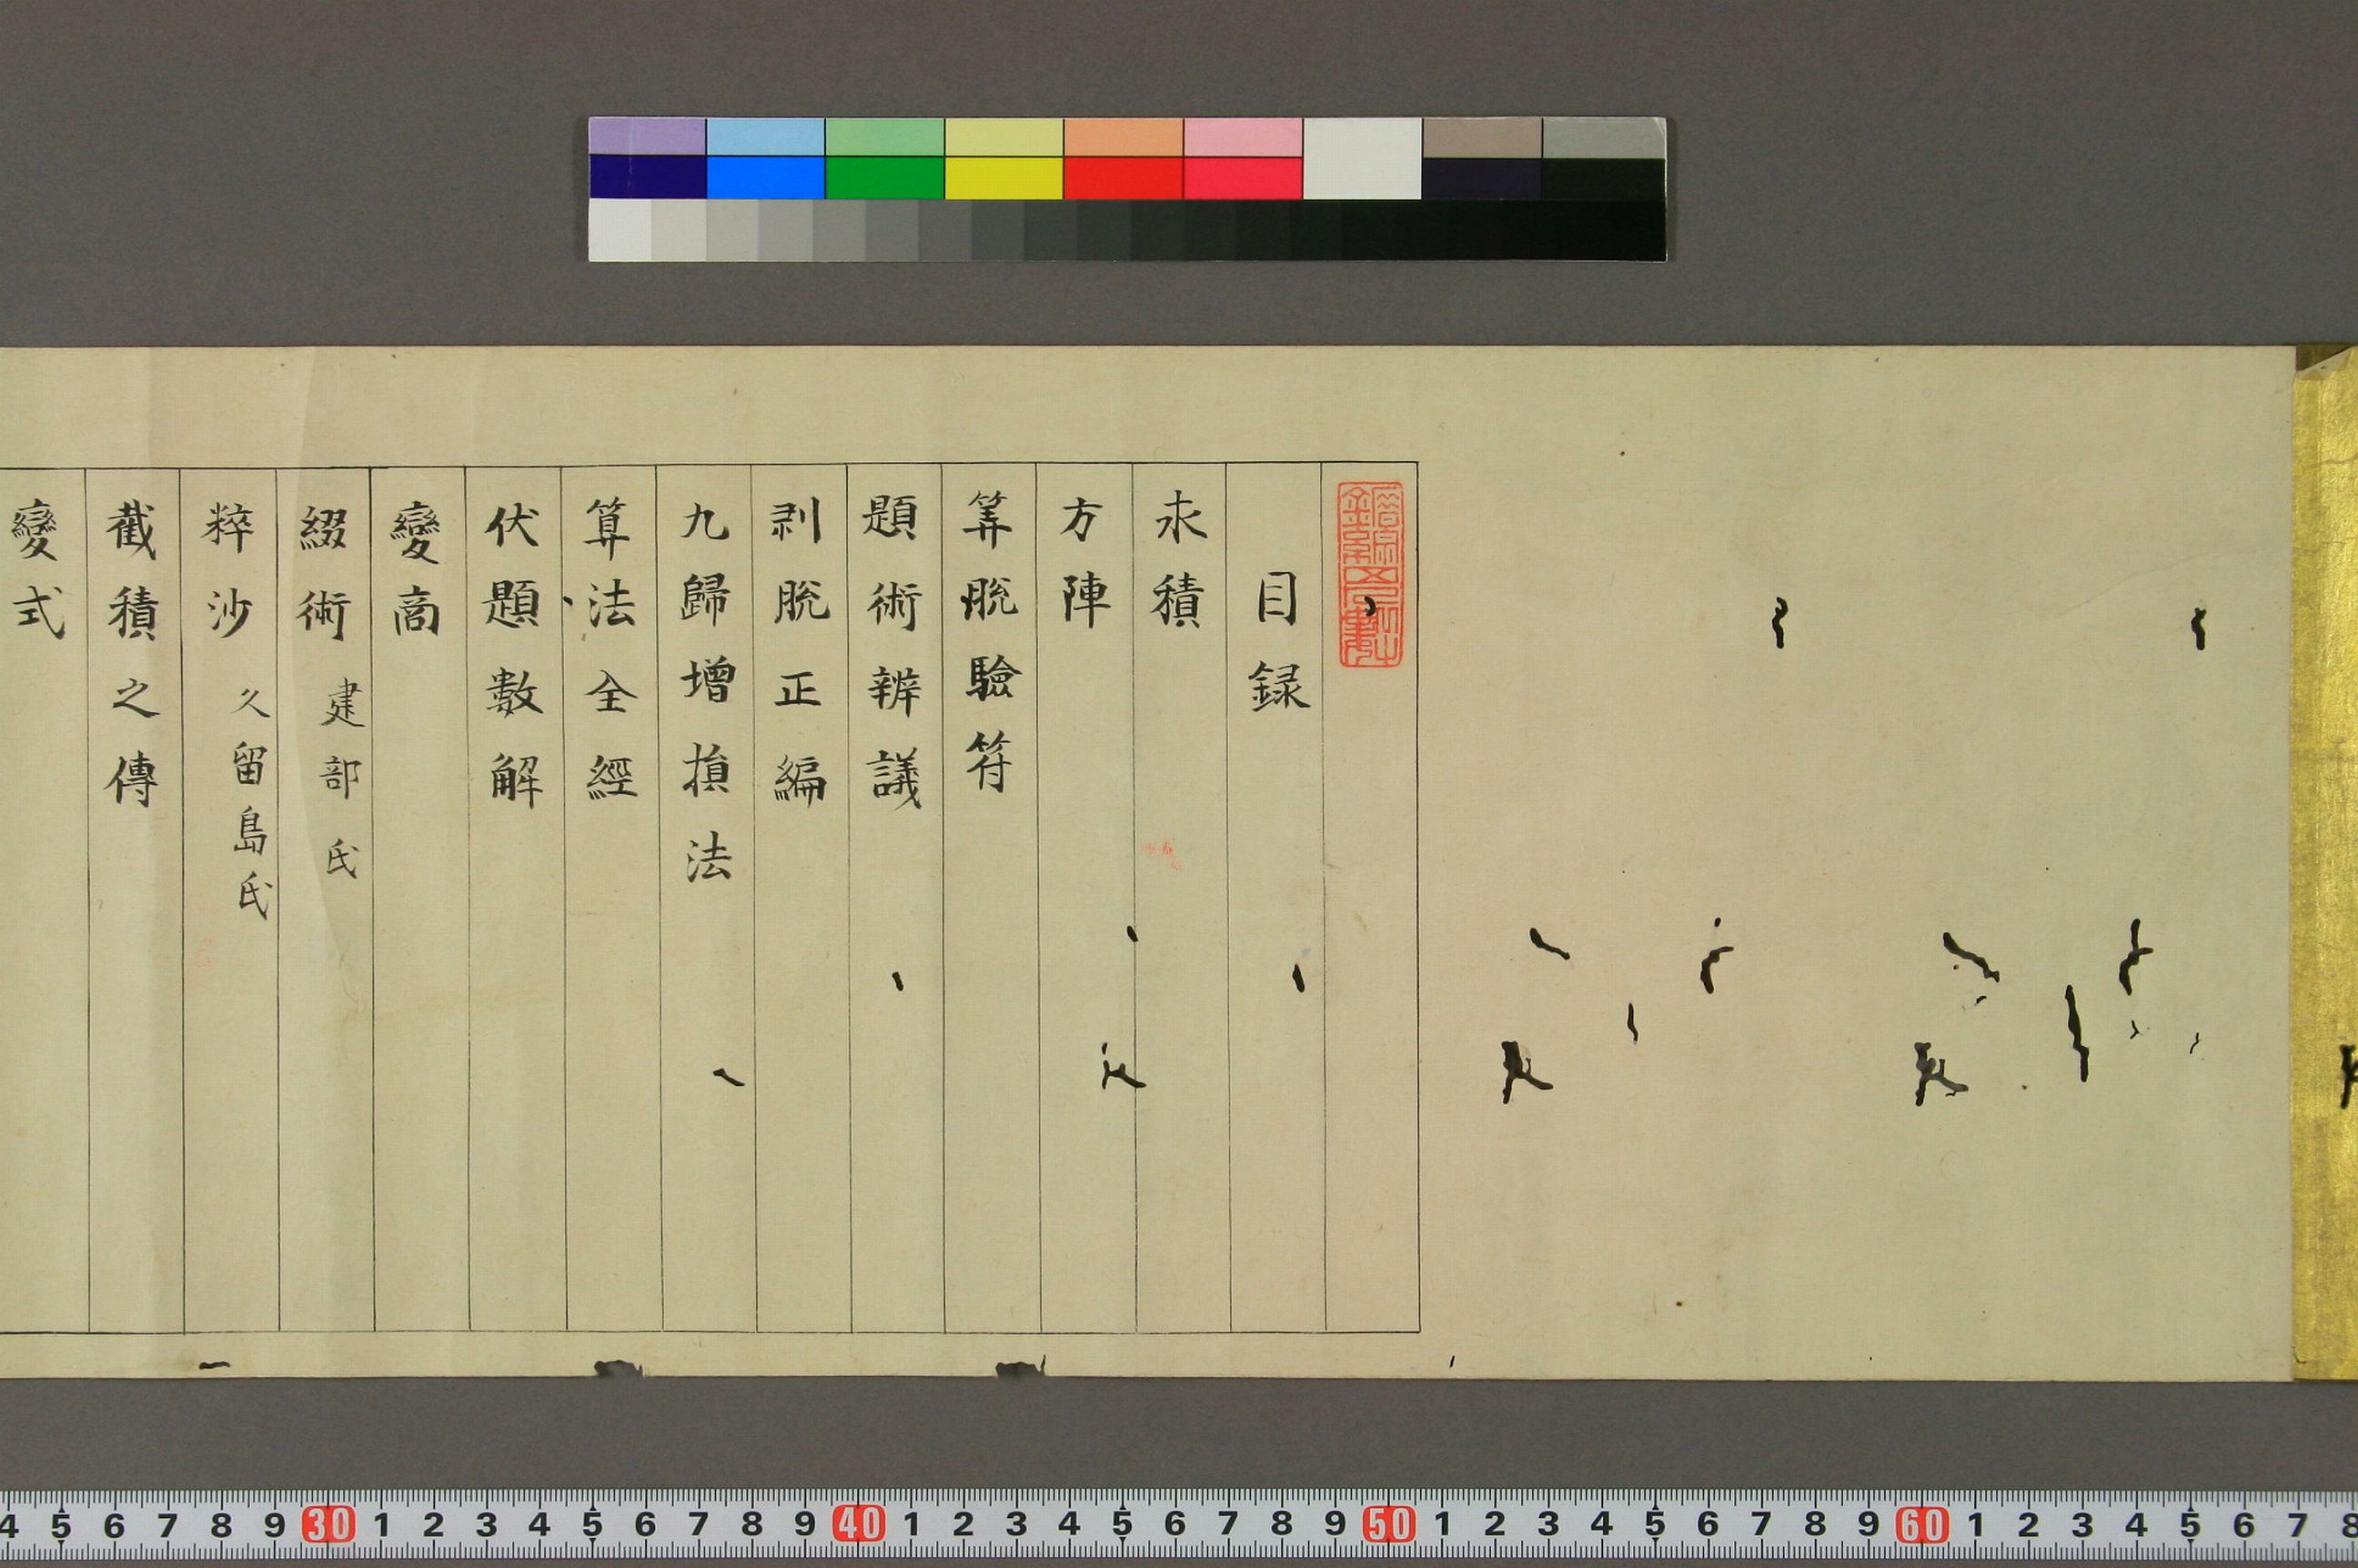 目録
求積
方陣
筭脱驗符
題術辨議
剥脱正編
九歸増損法
算法全經
伏題數解
變商
綴術 建部氏
粹沙 久留島氏
截積之傳
變式
4 5 6 7 8 9 30 1 2 3 4 5 6 7 8 9 40 1 2 3 4 5 6 7 8 9 50 1 2 3 4 5 6 7 8 9 60 1 2 3 4 5 6 7 8